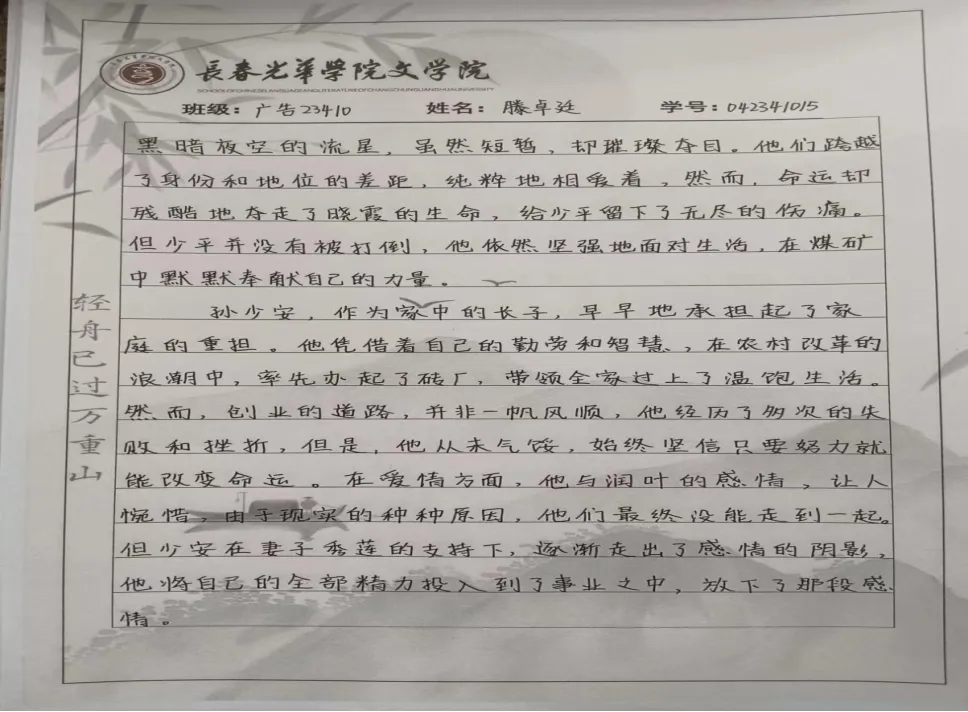 長春光華學院文學院
SCHOOLOFCHINESELANGUAGEANGLITERATUREOFCHANGCHUNGUANGHUAUNIVERSITY
班级：广告23410 姓名：滕卓廷 学号：042341015
黑暗夜空的流星，虽然短暂，却璀璨夺目。他们跨越
了身份和地位的差距，纯粹地相爱着，然而，命运却
残酷地夺走了晓霞的生命，给少平留下了无尽的伤痛。
但少平并没有被打倒，他依然坚强地面对生活，在煤矿
中默默奉献自己的力量。
孙少安，作为家中的长子，早早地承担起了家
庭的重担。他凭借着自己的勤劳和智慧，在农村改革的
浪潮中，率先办起了砖厂，带领全家过上了温饱生活。
然而，创业的道路，并非一帆风顺，他经历了多次的失
败和挫折，但是，他从未气馁，始终坚信只要努力就
能改变命运。在爱情方面，他与润叶的感情，让人
惋惜，由于现实的种种原因，他们最终没能走到一起。
但少安在妻子秀莲的支持下，逐渐走出了感情的阴影，
他将自己的全部精力投入到了事业之中，放下了那段感
情。
轻舟已过万重山